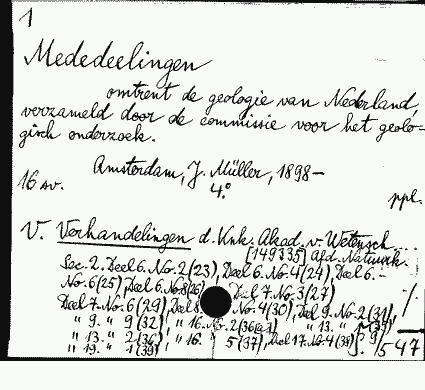 1
Mededeelingen
omtrent de geologie van Nederland,
verzameld door de commissie voor het geolo-
gisch onderzoek.
Amsterdam, J. Müller, 1898–
16 sv. 4° ppl.
V. Verhandelingen d. Knk. Akad. v. Wetensch...
[149335] Afd. Natuurk.
Sec. 2. Deel 6. No. 2 (23), Deel 6. No. 4 (24), Deel 6. -
No. 6 (25), Deel 6. No. 8 (26), Deel 7. No. 3 (27)
Deel 7. No. 6 (29), Deel No. 4 (30), Deel 9. No. 2 (31),
" 9. " 9 (32), " 16. No. " 13. "
" 13. " 2 (36), " 16. " 5 (37), Deel 17. No. 4 (38)
" 19. " 1 (39)
547